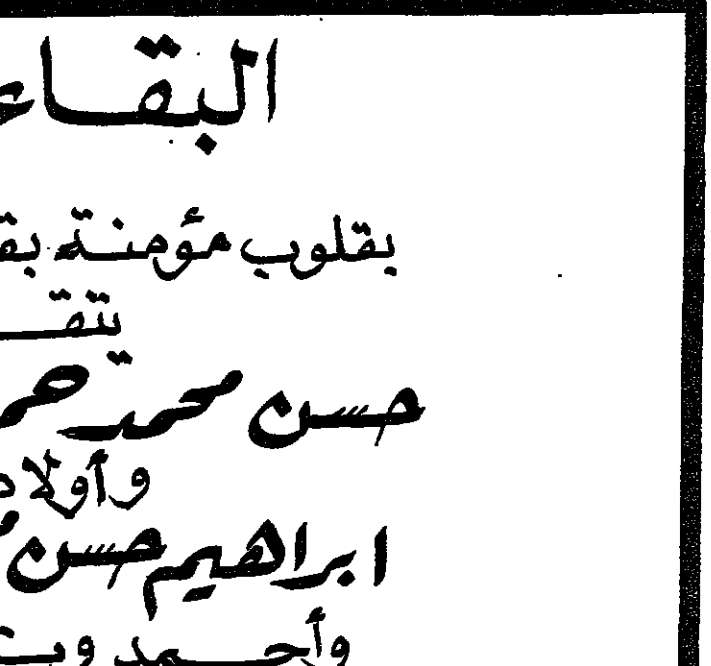 البقاء
بقلوب مؤمنة
حسن محمد
وأولاد
ابراهيم حسن
وأحمد